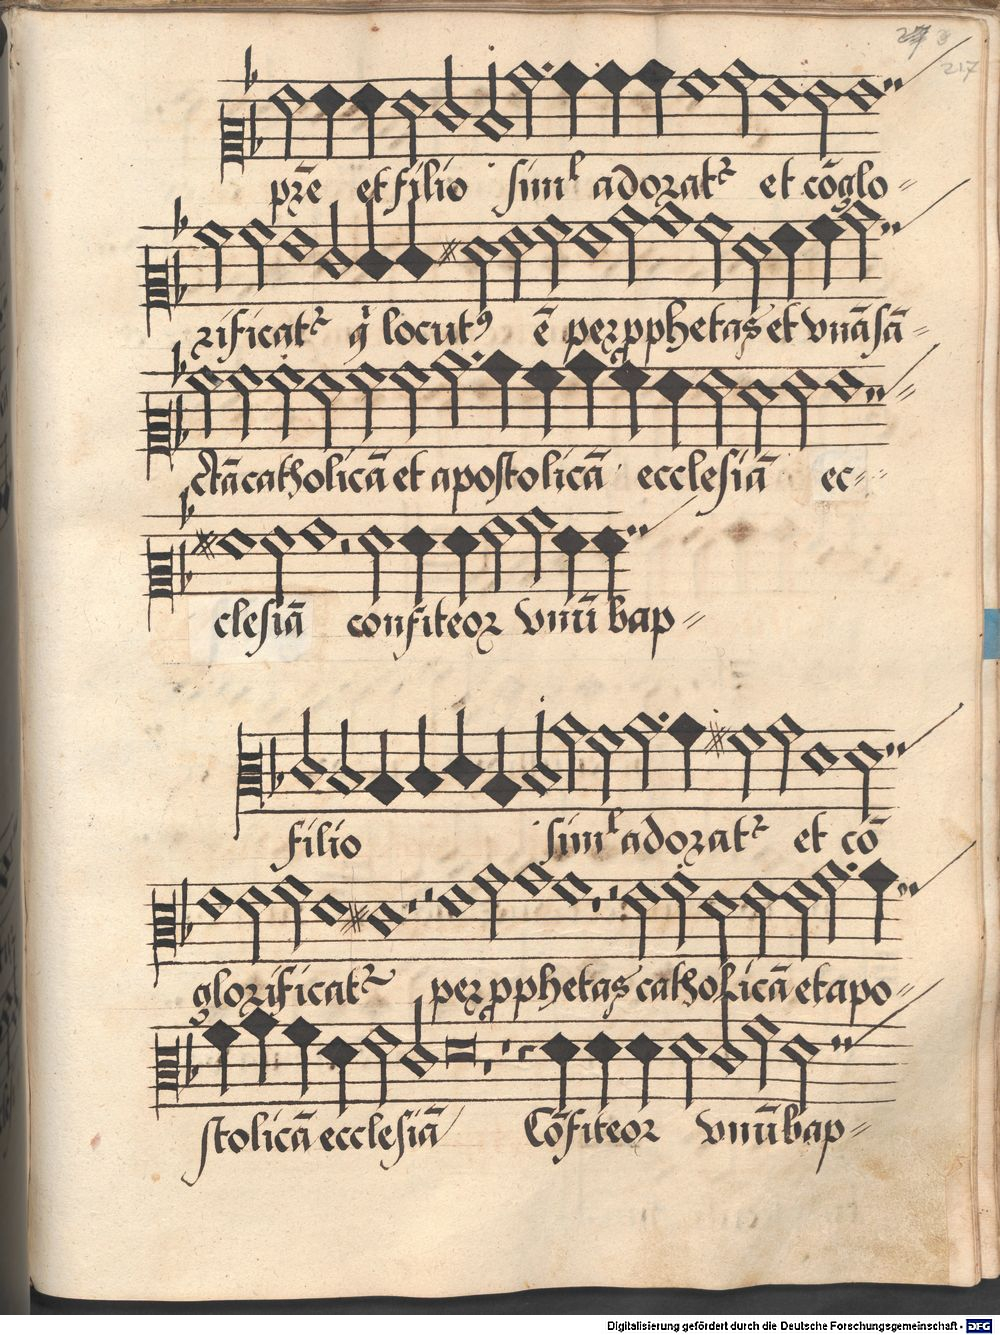 217
pr̄e et filio simˡ adoratᷣ et cōglo⸗
rificatᷣ q̇ locutꝰ ē per ꝓphetas et vnā sā⸗
ctā catholicā et apostolicā ecclesiā ec⸗
clesiā confiteor vnū bap⸗
filio simˡ adoratᷣ et cō
glorificatᷣ per ꝓphetas catholicā et apo⸗
stolicā ecclesiā Cōfiteor vnū bap⸗
Digitalisierung gefördert durch die Deutsche Forschungsgemeinschaft - DFG